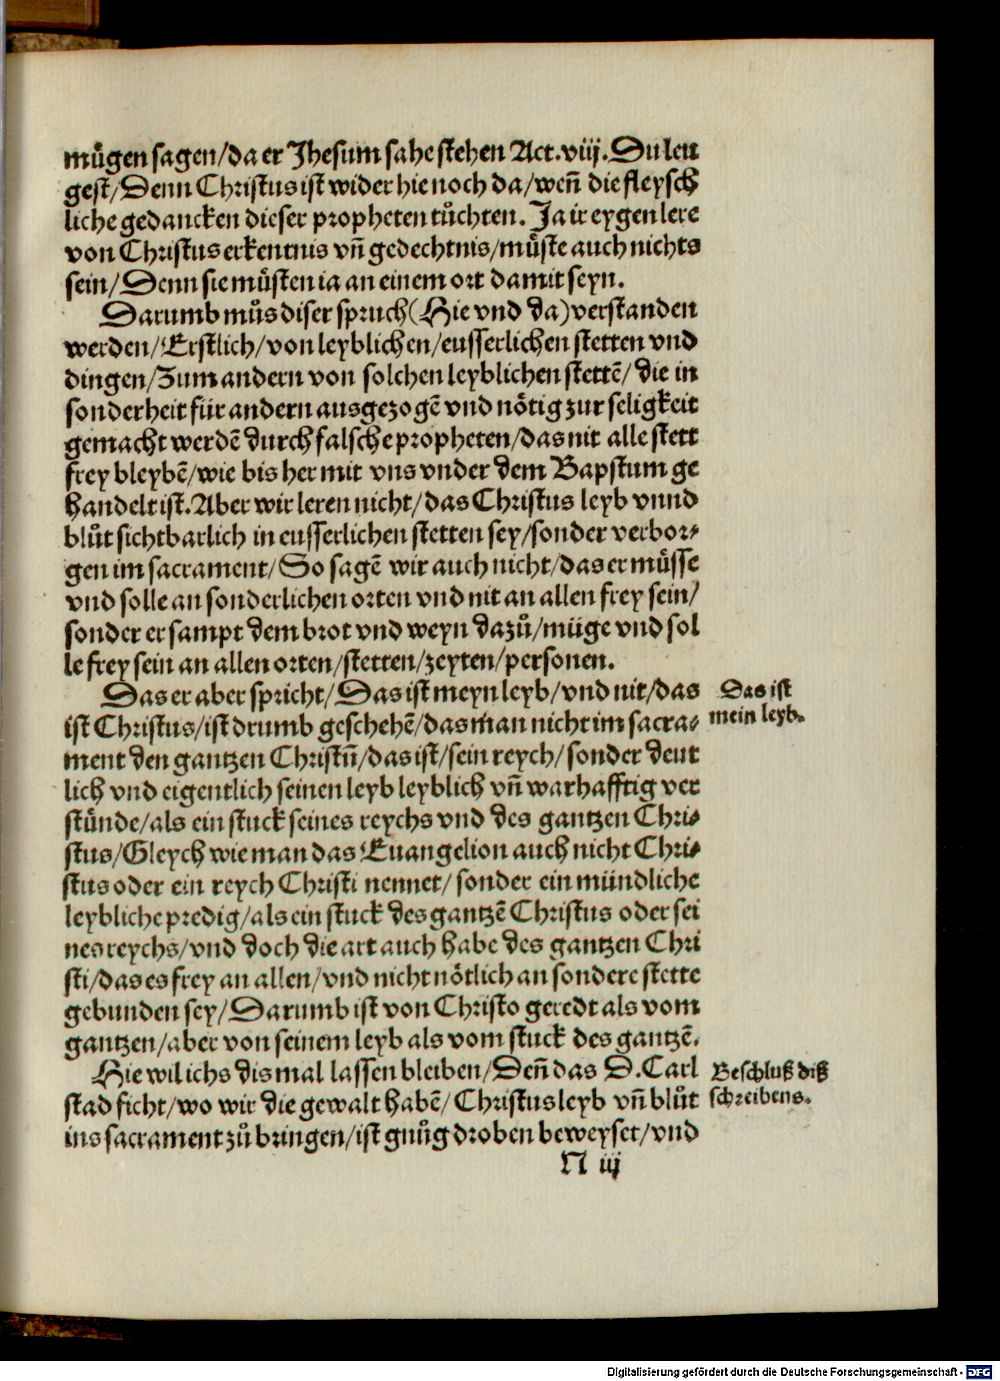 mügen sagen/da er Jhesum sahe stehen Act.viij. Du leu
gest/Denn Christus ist wider hie noch da/weñ die fleysch
liche gedancken dieser propheten tüchten. Ja ir eygen lere
von Christus erkentnis vñ gedechtnis/müste auch nichts
sein/Denn sie müsten ia an einem ort damit seyn.
Darumb můs diser spruch (Hie vnd da) verstanden
werden/Erstlich/von leyblichen/eusserlichen stetten vnd
dingen/Zum andern von solchen leyblichen stettē/die in
sonderheit für andern ausgezogē vnd nötig zur seligkeit
gemacht werdē durch falsche propheten/das nit alle stett
frey bleybē/wie bis her mit vns vnder dem Bapstum ge
handelt ist. Aber wir leren nicht/das Christus leyb vnnd
blůt sichtbarlich in eusserlichen stetten sey/sonder verbor⸗
gen im sacrament/So sagē wir auch nicht/das er müsse
vnd solle an sonderlichen orten vnd nit an allen frey sein/
sonder er sampt dem brot vnd weyn dazů/müge vnd sol
le frey sein an allen orten/stetten/zeyten/personen.
Das er aber spricht/Das ist meyn leyb/vnd nit/das
ist Christus/ist drumb geschehē/das man nicht im sacra⸗
ment den gantzen Christū/das ist/sein reych/sonder deut
lich vnd eigentlich seinen leyb leyblich vñ warhafftig ver
stünde/als ein stuck seines reychs vnd des gantzen Chri⸗
stus/Gleych wie man das Euangelion auch nicht Chri⸗
stus oder ein reych Christi nennet/sonder ein mündliche
leybliche predig/als ein stuck des gantzē Christus oder sei
nes reychs/vnd doch die art auch habe des gantzen Chri
sti/das es frey an allen/vnd nicht nötlich an sondere stette
gebunden sey/Darumb ist von Christo geredt als vom
gantzen/aber von seinem leyb als vom stuck des gantzē.
Hie wil ichs dis mal lassen bleiben/Deñ das D. Carl
stad ficht/wo wir die gewalt habē/Christus leyb vñ blůt
ins sacrament zů bringen/ist gnůg droben beweyset/vnd
N iij
Das ist
mein leyb.
Beschluß diß
schreibens.
Digitalisierung gefördert durch die Deutsche Forschungsgemeinschaft - DFG